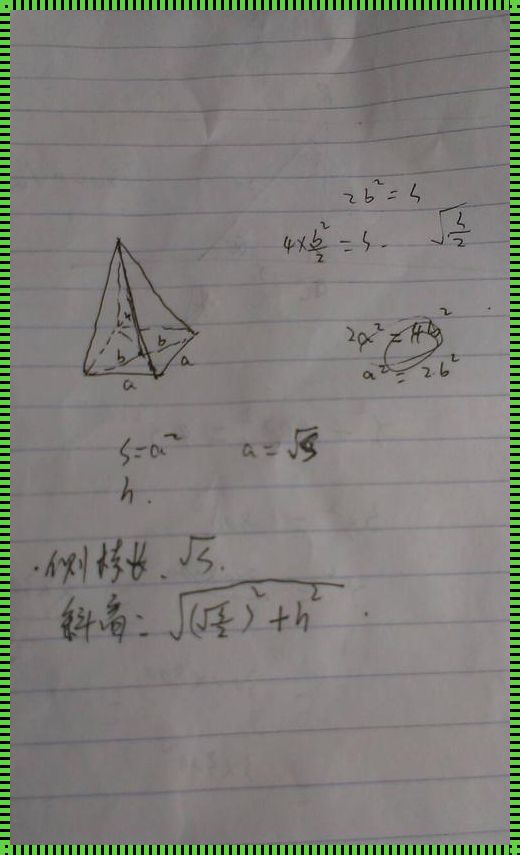 2b² = S
4×b²/2 = S.  √(S/2)
b b
a a
2a² = 4b²
a² = 2b²
S=a²  a=√S
h.
·侧棱长.√S.
斜高：√((√(S/2))²+h²).